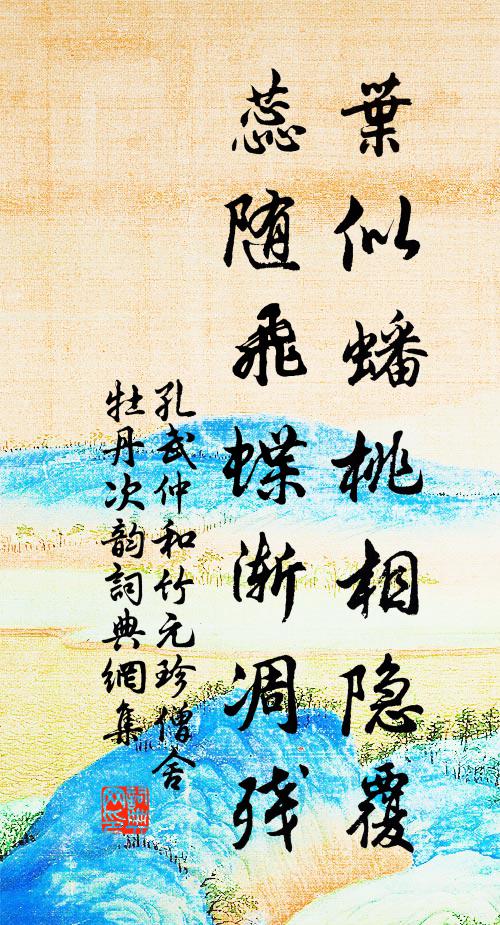 葉似蟠桃相隐覆
蕊随飛蝶漸凋残
孔武仲和竹元珍僧舍
牡丹次韵詞典網集